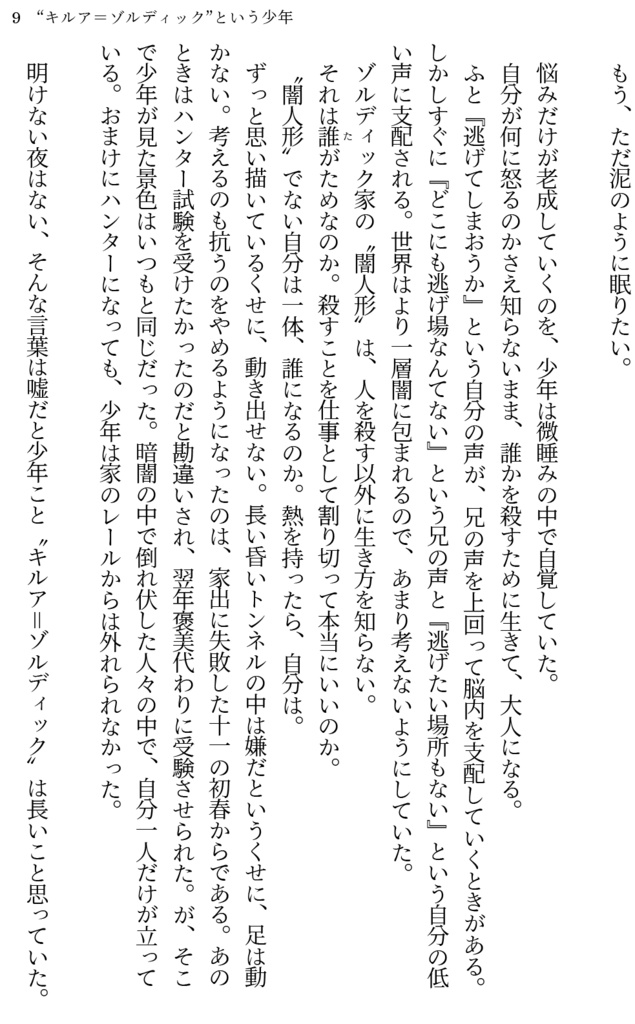 9 “キルア＝ゾルディック”という少年
もう、ただ泥のように眠りたい。
悩みだけが老成していくのを、少年は微睡みの中で自覚していた。
自分が何に怒るのかさえ知らないまま、誰かを殺すために生きて、大人になる。
ふと『逃げてしまおうか』という自分の声が、兄の声を上回って脳内を支配していくときがある。
しかしすぐに『どこにも逃げ場なんてない』という兄の声と『逃げたい場所もない』という自分の低
い声に支配される。世界はより一層闇に包まれるので、あまり考えないようにしていた。
ゾルディック家の〝闇人形〟は、人を殺す以外に生き方を知らない。
それは誰がためなのか。殺すことを仕事として割り切って本当にいいのか。
た
〝闇人形〟でない自分は一体、誰になるのか。熱を持ったら、自分は。
ずっと思い描いているくせに、動き出せない。長い昏いトンネルの中は嫌だというくせに、足は動
かない。考えるのも抗うのをやめるようになったのは、家出に失敗した十一の初春からである。あの
ときはハンター試験を受けたかったのだと勘違いされ、翌年褒美代わりに受験させられた。が、そこ
で少年が見た景色はいつもと同じだった。暗闇の中で倒れ伏した人々の中で、自分一人だけが立って
いる。おまけにハンターになっても、少年は家のレールからは外れられなかった。
明けない夜はない、そんな言葉は嘘だと少年こと〝キルア＝ゾルディック〟は長いこと思っていた。